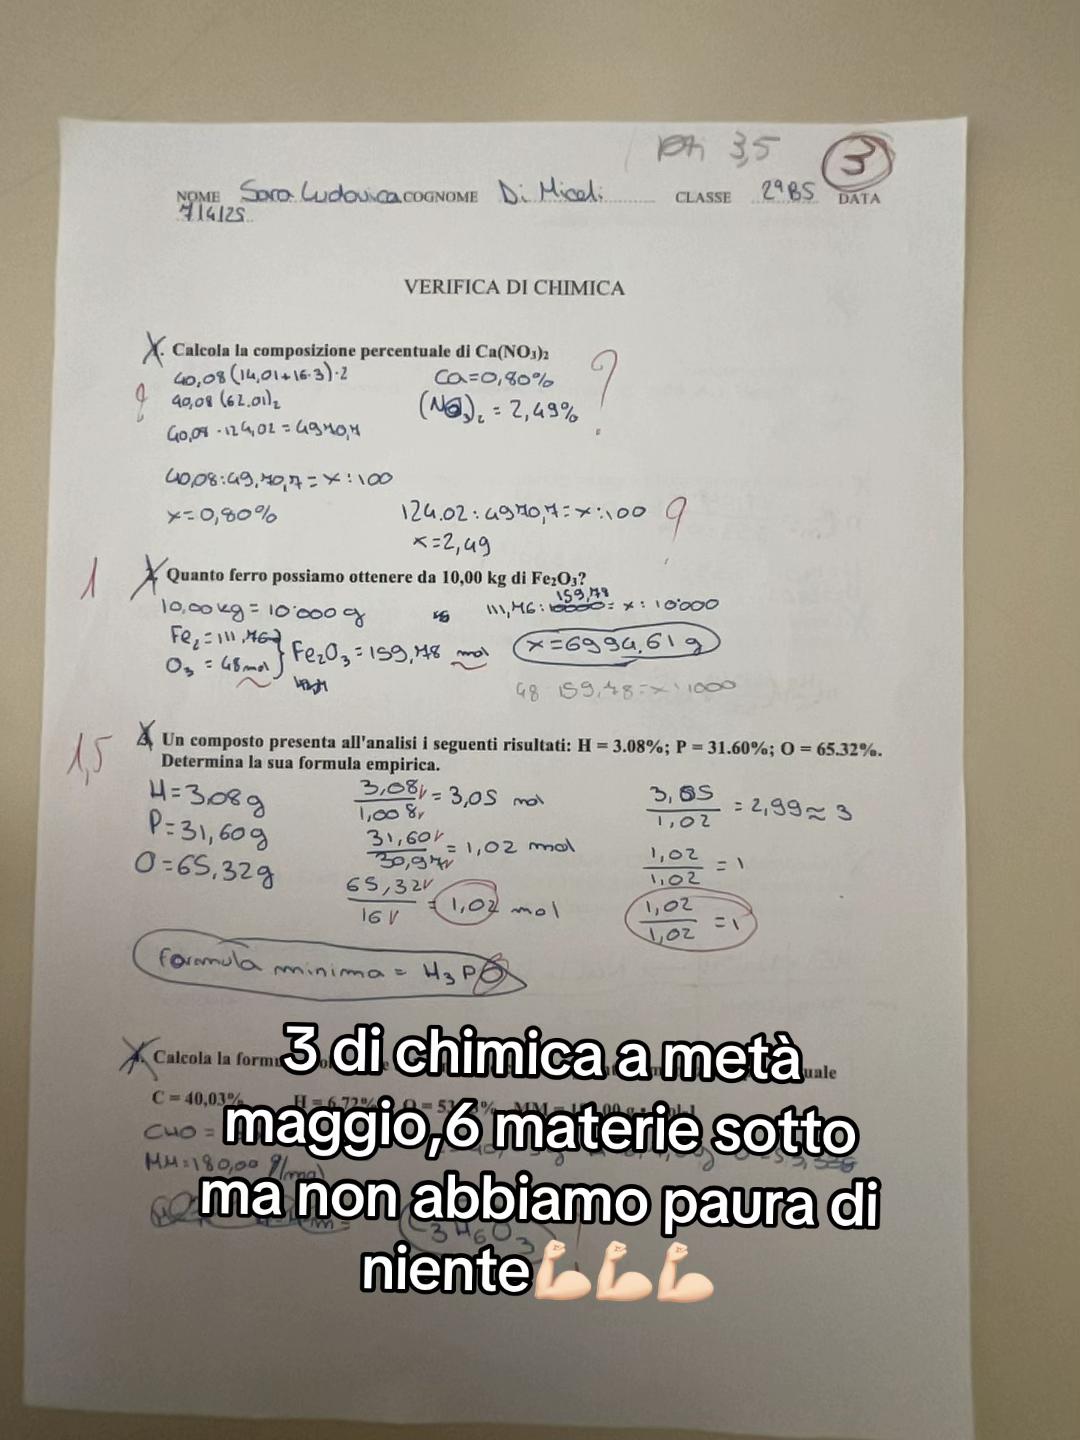 pti 3,5
3
NOME Sara Ludovica COGNOME Di Miceli CLASSE 2ªBS DATA
7/4/25
VERIFICA DI CHIMICA
1. Calcola la composizione percentuale di Ca(NO₃)₂
40,08(14,01+16·3)·2 Ca=0,80% ?
? 40,08(62.01)₂ (NO₃)₂ = 2,49%
40,08·124,02=4970,7
40,08:49,70,7=x:100
x=0,80% 124.02:4970,7=x:100 ?
x=2,49
1 2. Quanto ferro possiamo ottenere da 10,00 kg di Fe₂O₃?
10,00kg=10'000g 111,76: 159,78 = x:10'000
Fe₂=111,76 Fe₂O₃=159,78 mol x=6994,61g
O₃=48mol
48 159,78=x:1000
1,5 3. Un composto presenta all'analisi i seguenti risultati: H = 3.08%; P = 31.60%; O = 65.32%.
Determina la sua formula empirica.
H=3,08g 3,08/1,008=3,05 mol 3,05/1,02=2,99≈3
P=31,60g 31,60/30,97=1,02 mol 1,02/1,02=1
O=65,32g 65,32/16=1,02 mol 1,02/1,02=1
formula minima = H₃PO
4. Calcola la form uale
C = 40,03% H = 6,72% O = 53 %
CHO =
MM=180,00 g/mol
C₃H₆O₃
3 di chimica a metà
maggio,6 materie sotto
ma non abbiamo paura di
niente💪🏻💪🏻💪🏻